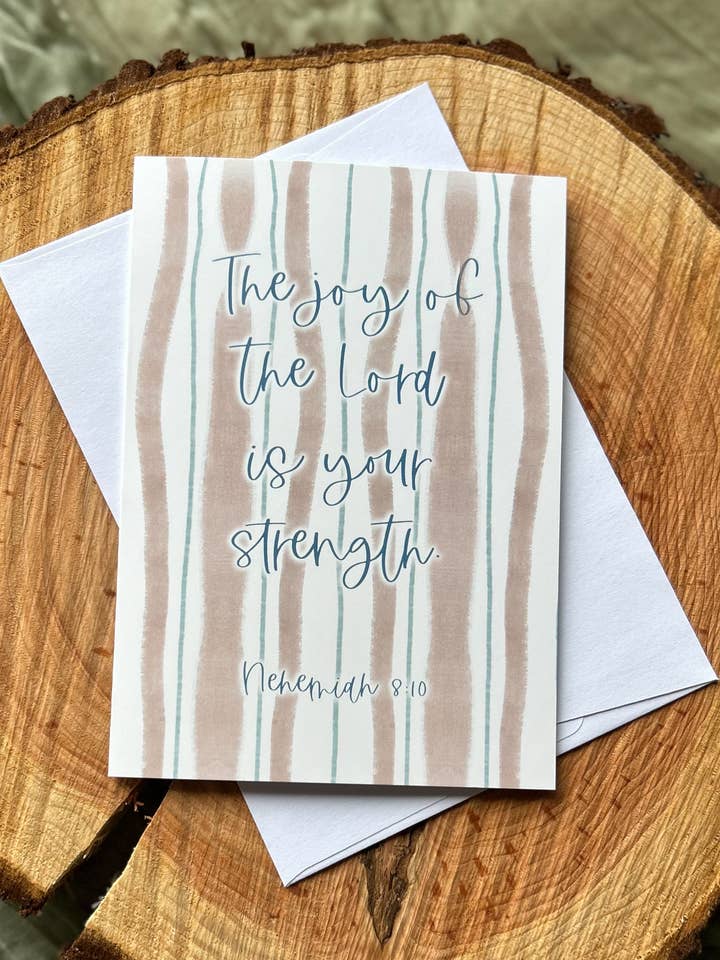 The joy of
the Lord
is your
strength.
Nehemiah 8:10